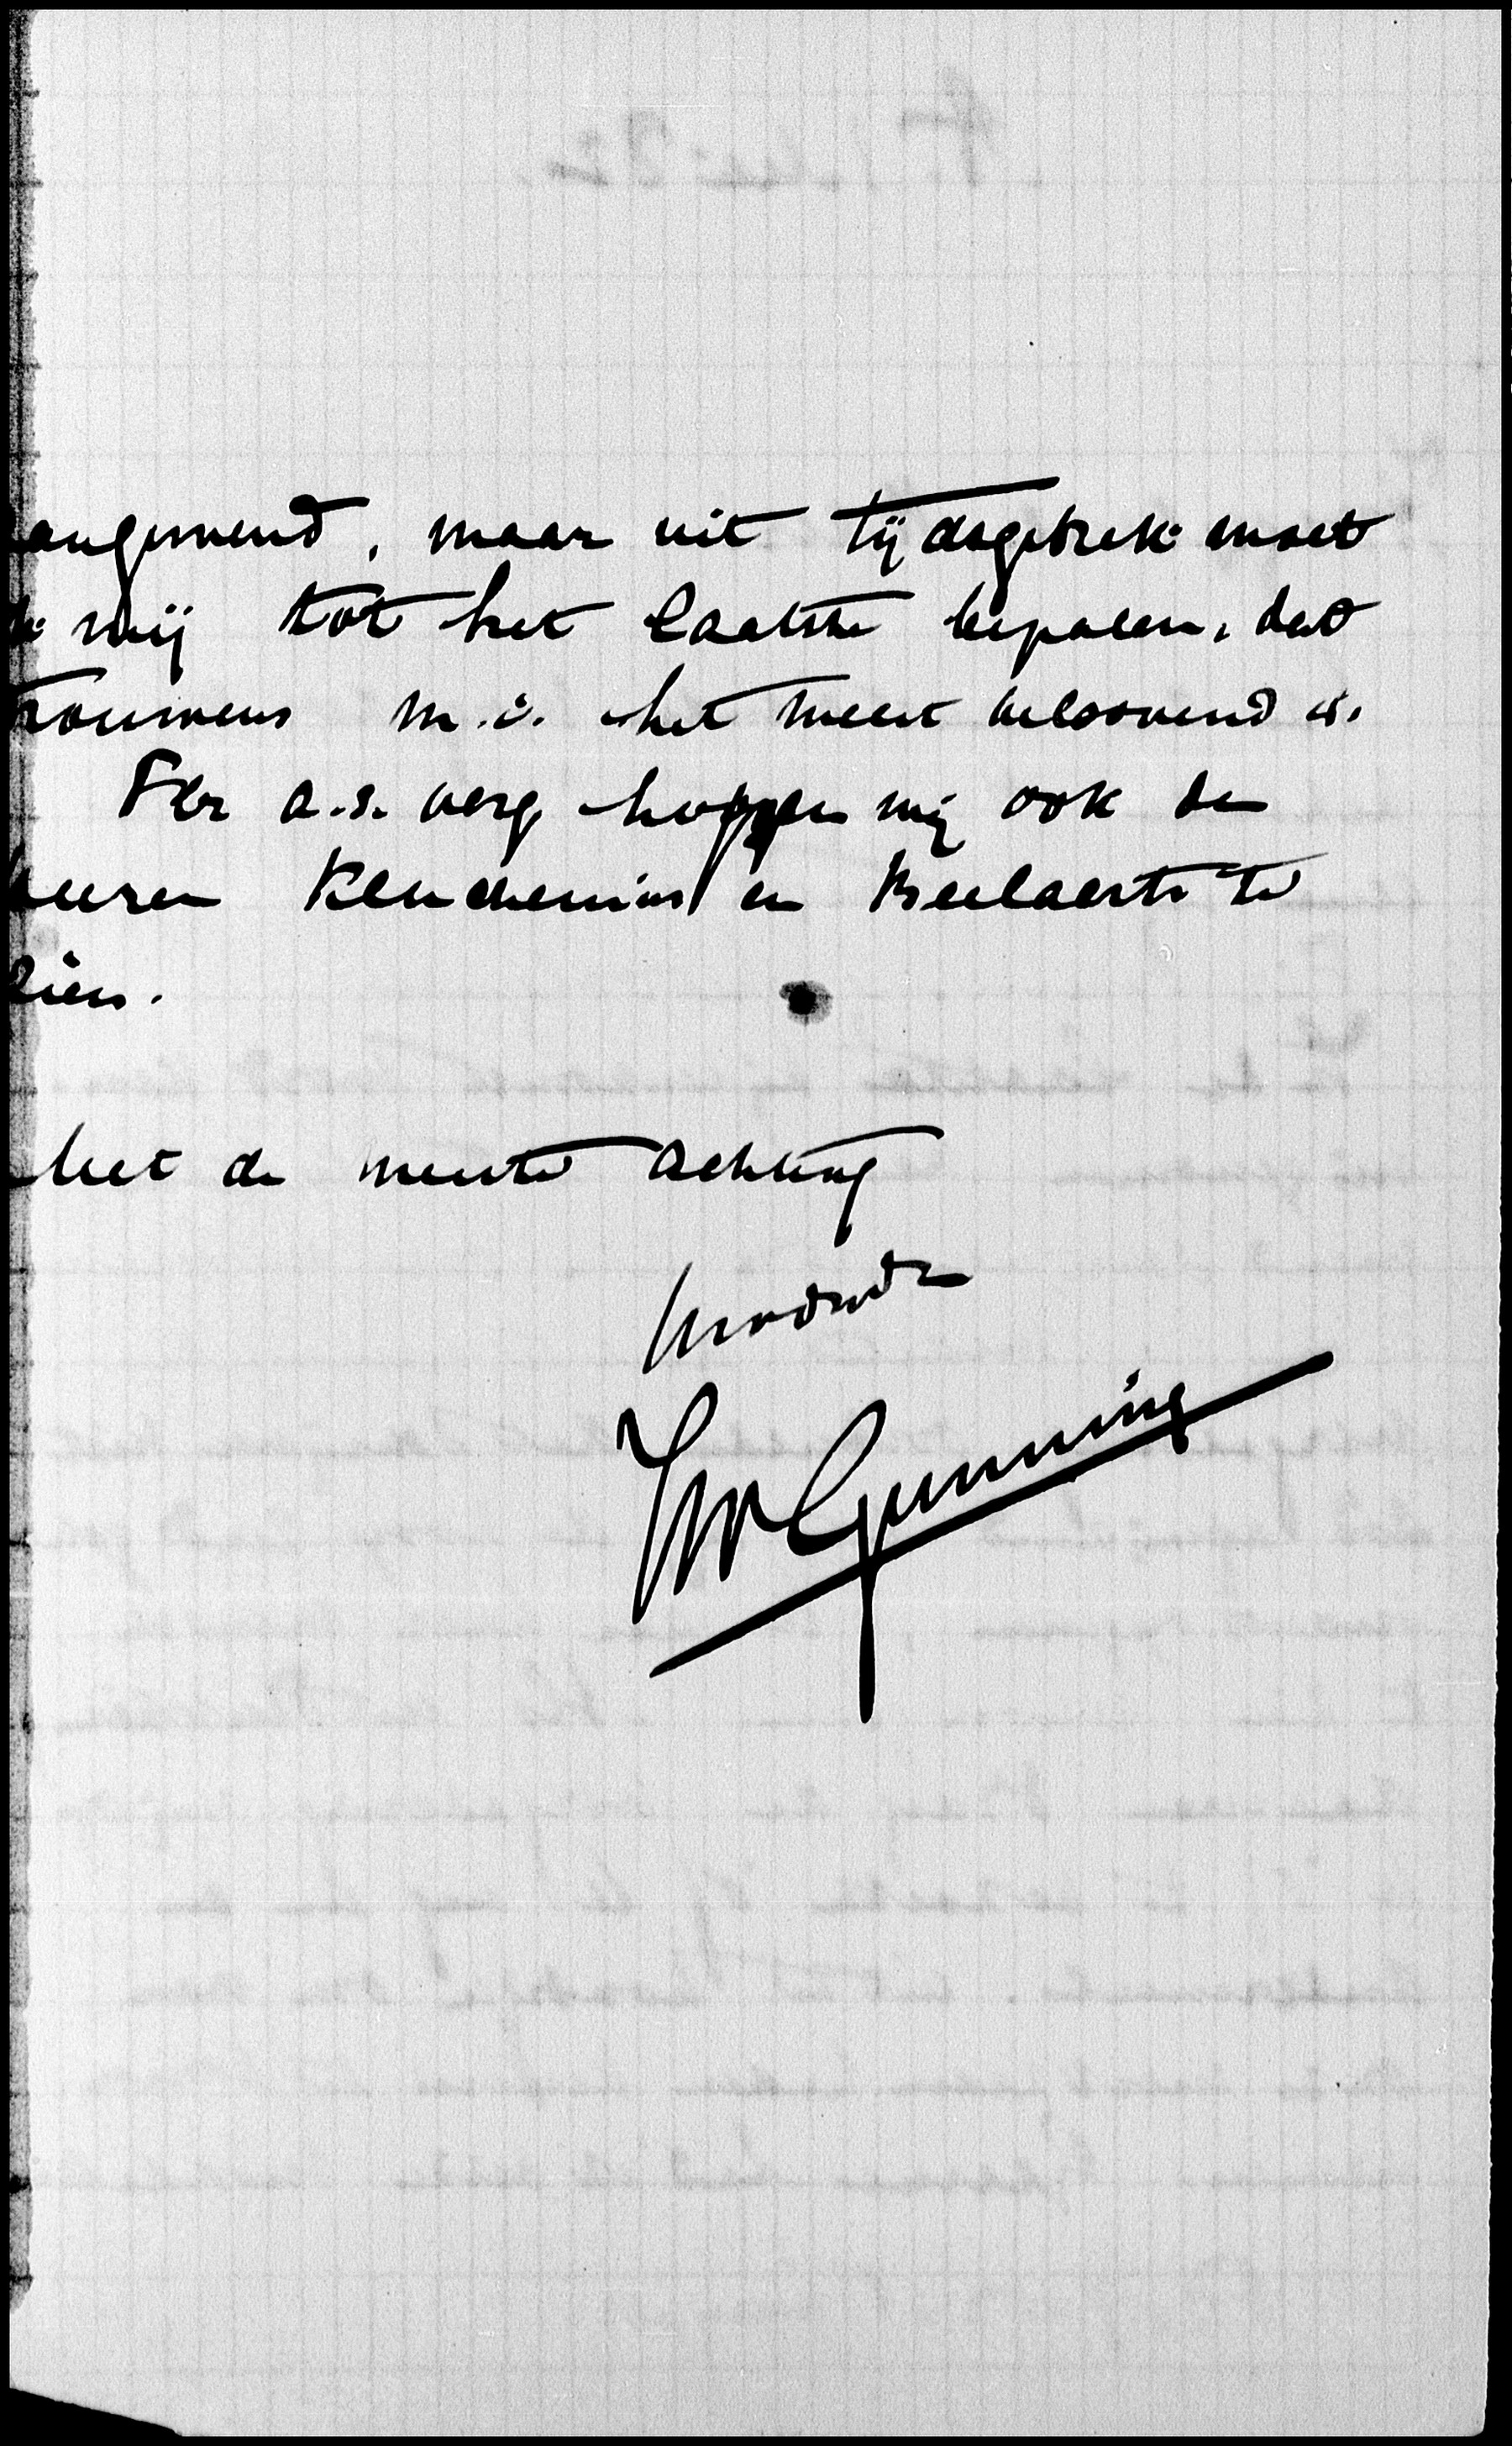 aangewend, maar uit tijdsgebrek moet
ik mij tot het laatste bepalen, dat
trouwens m.i. het meest belovend is.
Ter a.s. verg. hoppen wij ook de
heeren Keuchenius en Beelaerts te
zien.
Met de meeste achting
JW Gunning